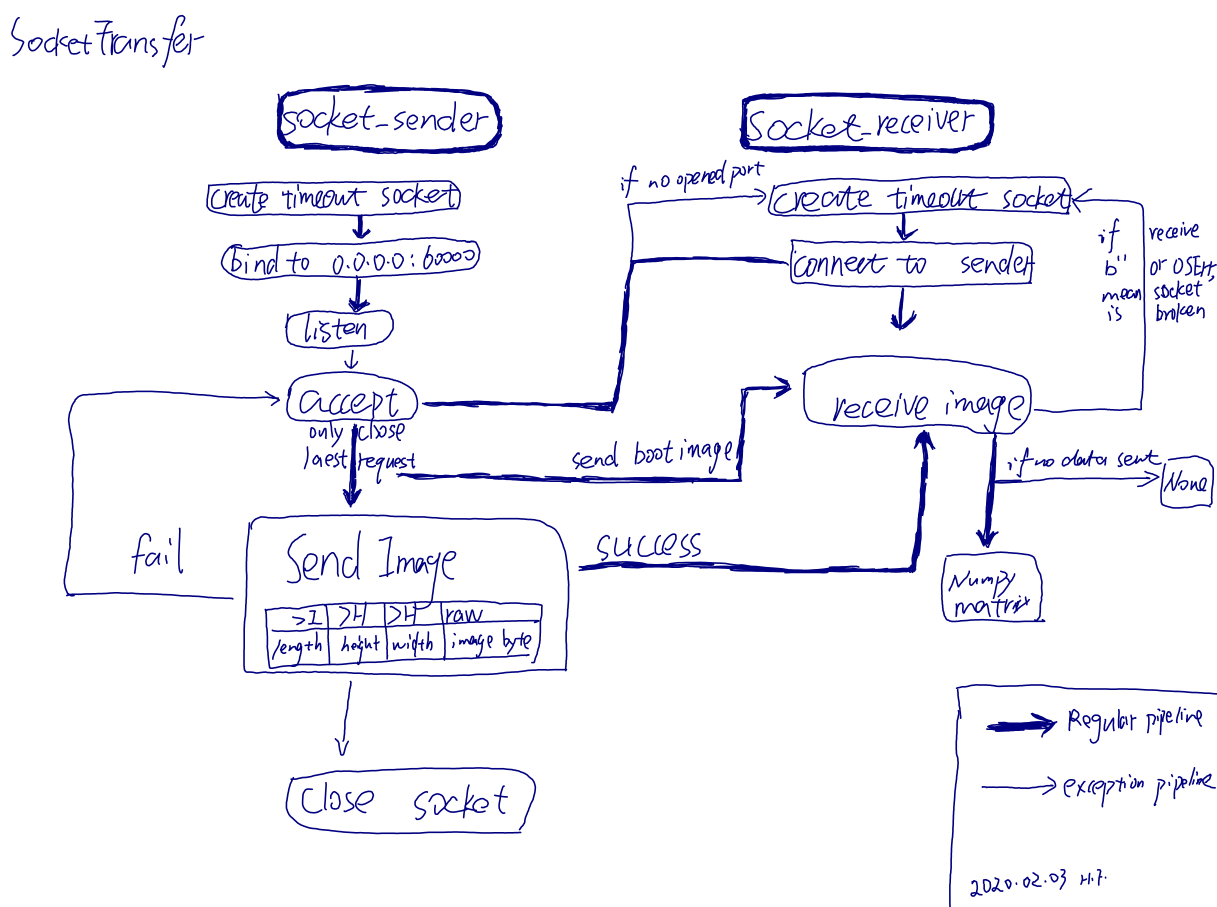 SocketTransfer
socket_sender
create timeout socket
bind to 0.0.0.0:60000
listen
accept
only close
laest request
send boot image
fail
Send Image
success
>I >H >H raw
length height width image byte
close socket
socket_receiver
if no opened port
create timeout socket
connect to sender
if receive
b'' or OSErr,
mean socket
is broken
receive image
if no data sent
None
Numpy
matrix
Regular pipeline
exception pipeline
2020.02.03